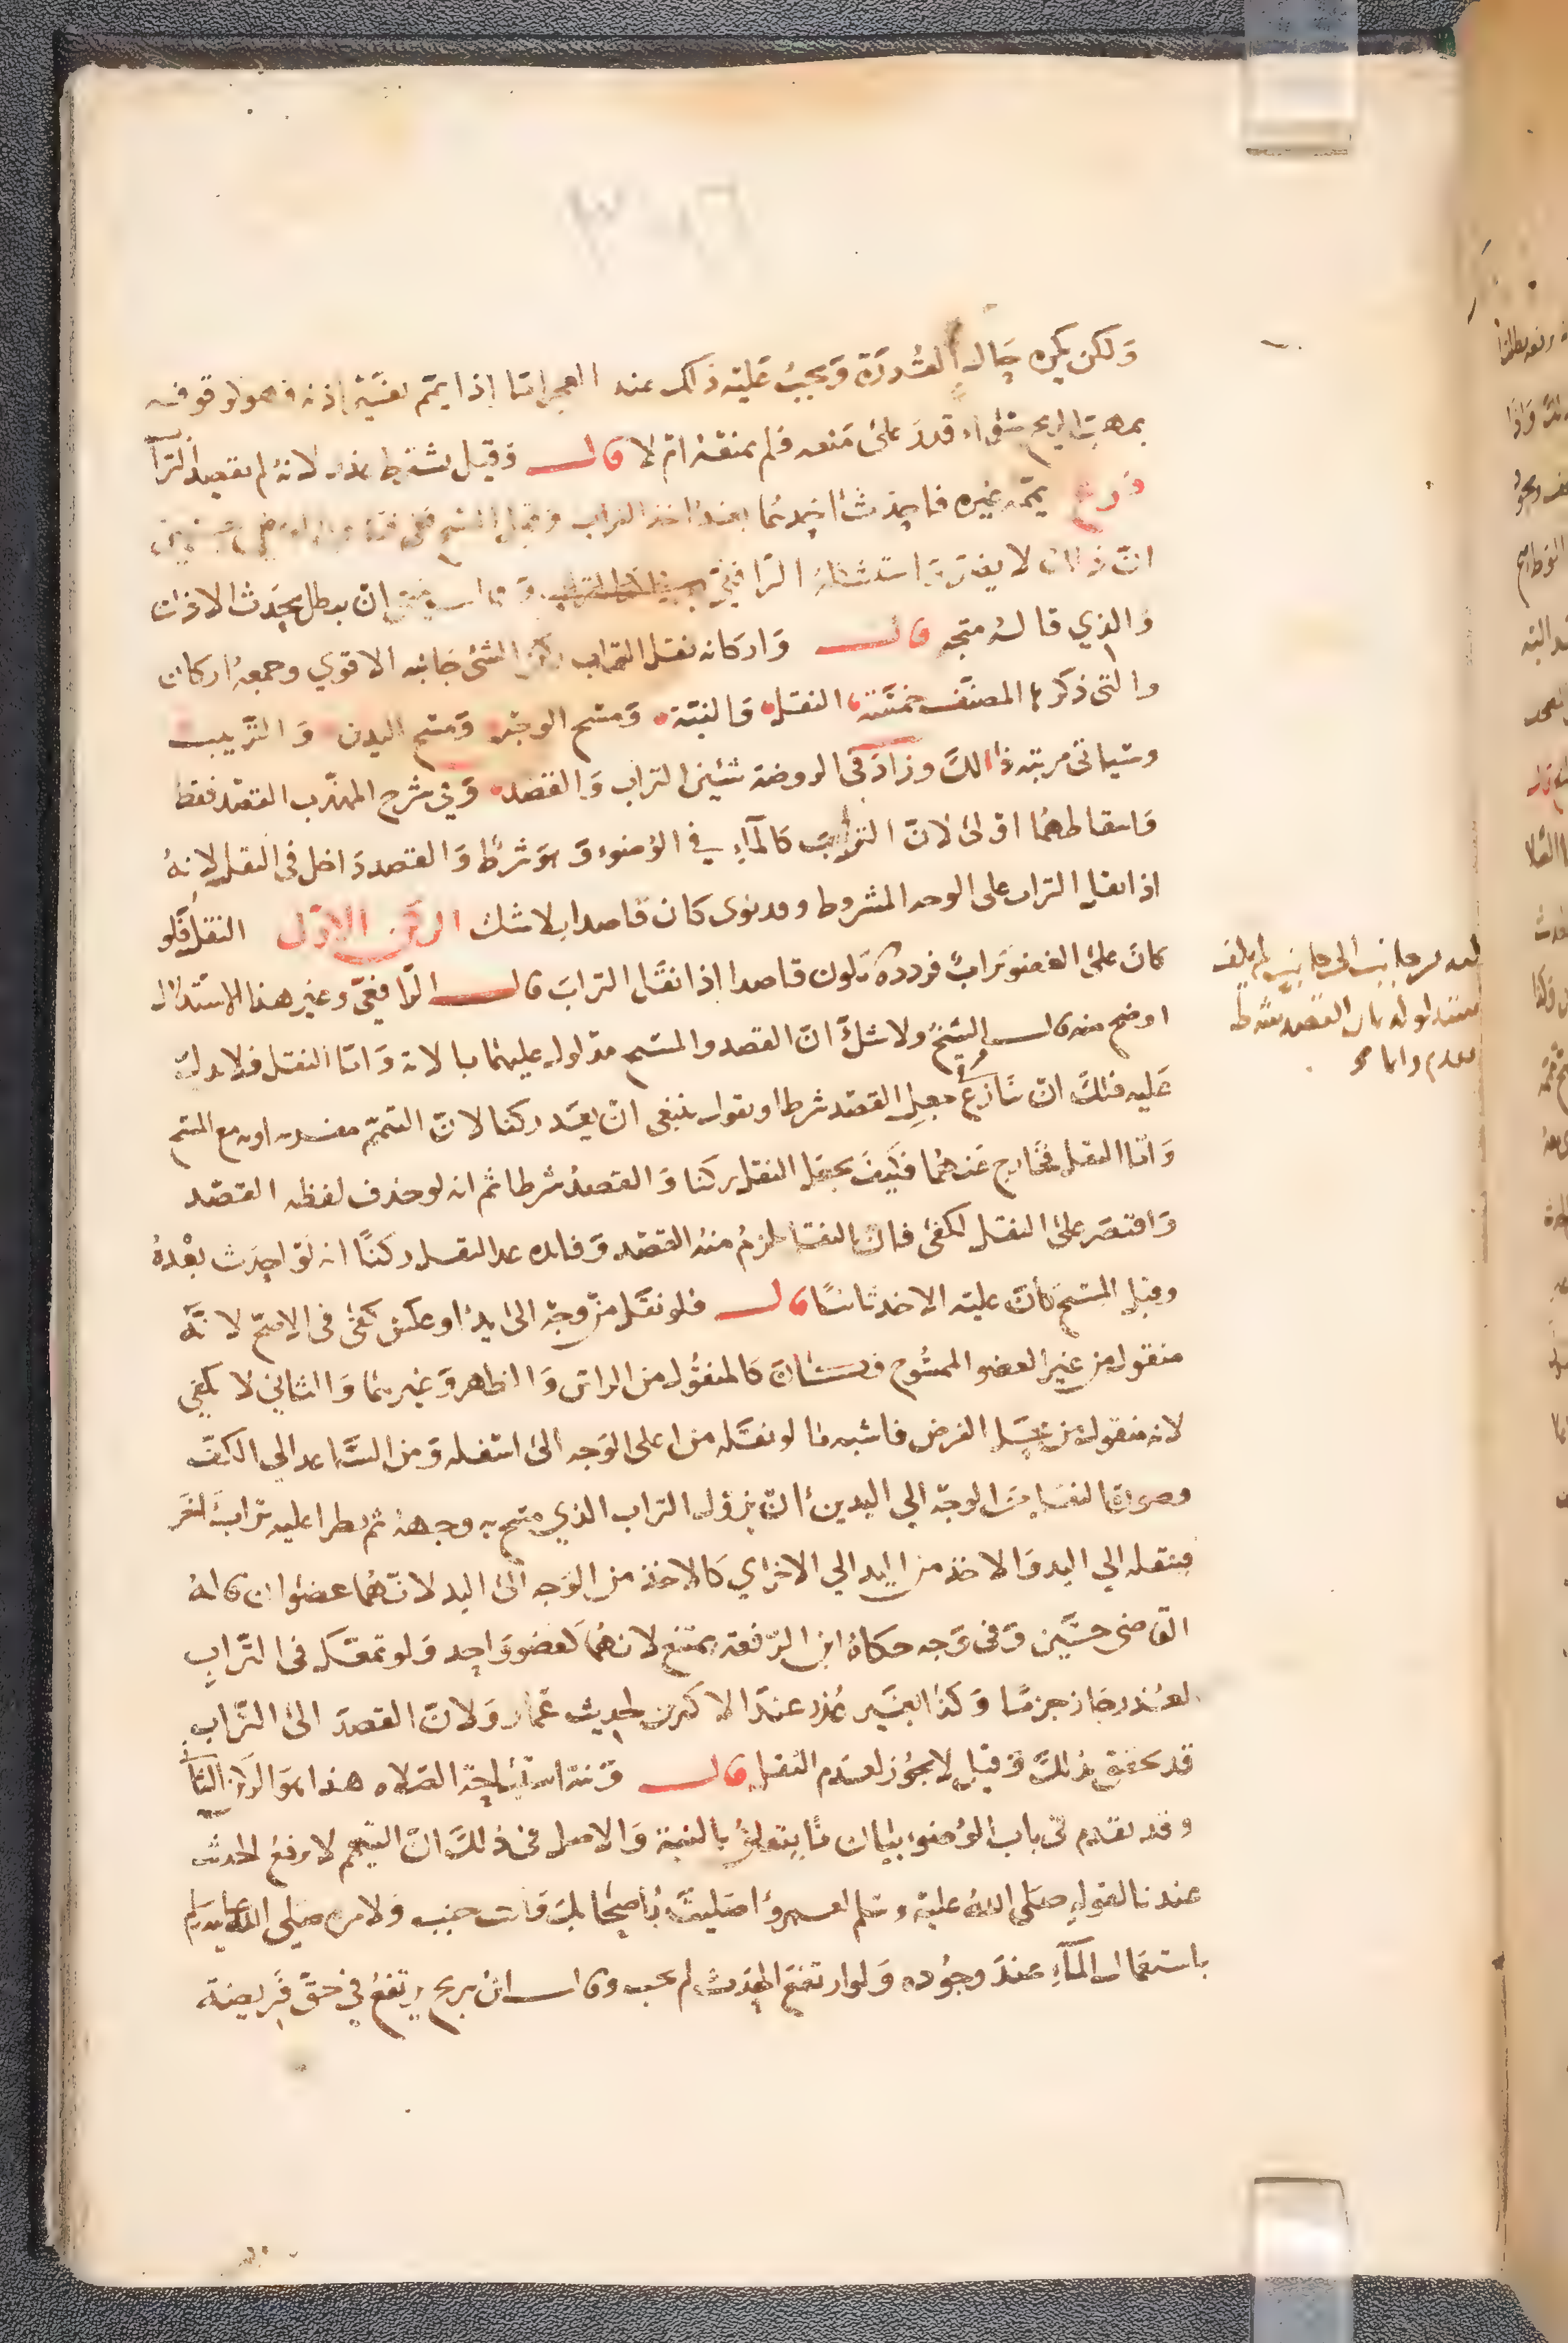 ولكن يكره حالة القدرة ويجب عليه ذلك عند العجز اما إذا يمم بغير إذنه فهو كوقوفه
بمهب الريح سواء قدر على منعه فلم يمنعه ام لا قال وقيل يشترط عذر لانه لم يقصد التراب
فرع يممه غيره فاحدث احدهما بعد اخذ التراب وقبل المسح ففي
ان ذلك لا يضر واستشكله الرافعي وقال ينبغي ان يبطل بحدث الاذن
والذي قاله متجه قال واركانه نقل التراب ركن الشئ جانبه الاقوي وجمعه اركان
والتي ذكرها المصنف خمسة النقل والنية ومسح الوجه ومسح اليدين والترتيب
وسياتي مرتبه ذلك وزاد في الروضة شيئين التراب والقصد وفي شرح المهذب القصد فقط
واسقاطهما اولى لان التراب كالماء في الوضوء وهو شرط والقصد داخل في النقل لانه
اذا نقل التراب على الوجه المشروط وقد نوى كان قاصدا بلا شك الركن الاول النقل فلو
كان على العضو تراب فردده عليه من جانب إلى جانب لم يكف
مستدلوله بان القصد شرط
وانما هو
يكون قاصدا اذا نقل التراب قال الرافعي وغير هذا الاستدلال
اوضح منه قال الشيخ ولا شك ان القصد والمسح مدلول عليهما بالاية واما النقل فلا يدل
عليه فلك ان تنازع في جعل القصد شرطا وتقول ينبغي ان يعد ركنا لان التيمم مفسر به او به مع المسح
واما النقل فخارج عنهما فكيف يجعل النقل ركنا والقصد شرطا ثم انه لو حذف لفظه القصد
واقتصر على النقل لكفى فان النقل يلزم منه القصد وفائده عد النقل ركنا انه لو احدث بعده
وقبل المسح كان عليه الاخذ ثانيا قال فلو نقل من وجه الى يد او عكس كفى في الاصح لانه
منقول من غير العضو الممسوح فـ كالمنقول من الراس والظاهر وغيرهما والثاني لا يكفي
لانه منقول من محل الفرض فاشبه ما لو نقله من اعلى الوجه الى اسفله ومن الساعد الي الكف
وصورة النقل من الوجه الي اليدين ان يزول التراب الذي مسح به وجهه ثم يطرا عليه تراب اخر
فينقله الي اليد والاخذ من اليد الي الاخراي كالاخذ من الوجه الى اليد لانهما عضوان قاله
القاضي حسين وفي وجه حكاه ابن الرفعة يمتنع لانهما كعضو واحد ولو تمعك في التراب
لعذر جاز جزما وكذا بغير عذر عند الاكثرين لحديث عمار ولان القصد الى التراب
قد تحقق بذلك وقيل لا يجوز لعدم النقل قال ونية استباحة الصلاه هذا هو الركن الثاني
وقد تقدم في باب الوضوء بيان ما يتعلق بالنية والاصل في ذلك ان التيمم لا يرفع الحدث
عندنا لقوله صلى الله عليه وسلم لعمرو اصليت باصحابك وانت جنب ولامره صلى الله عليه وسلم
باستعمال الماء عند وجوده ولو ارتفع الحدث لم يجب وقال ابن سريج يرتفع في حق فريضة